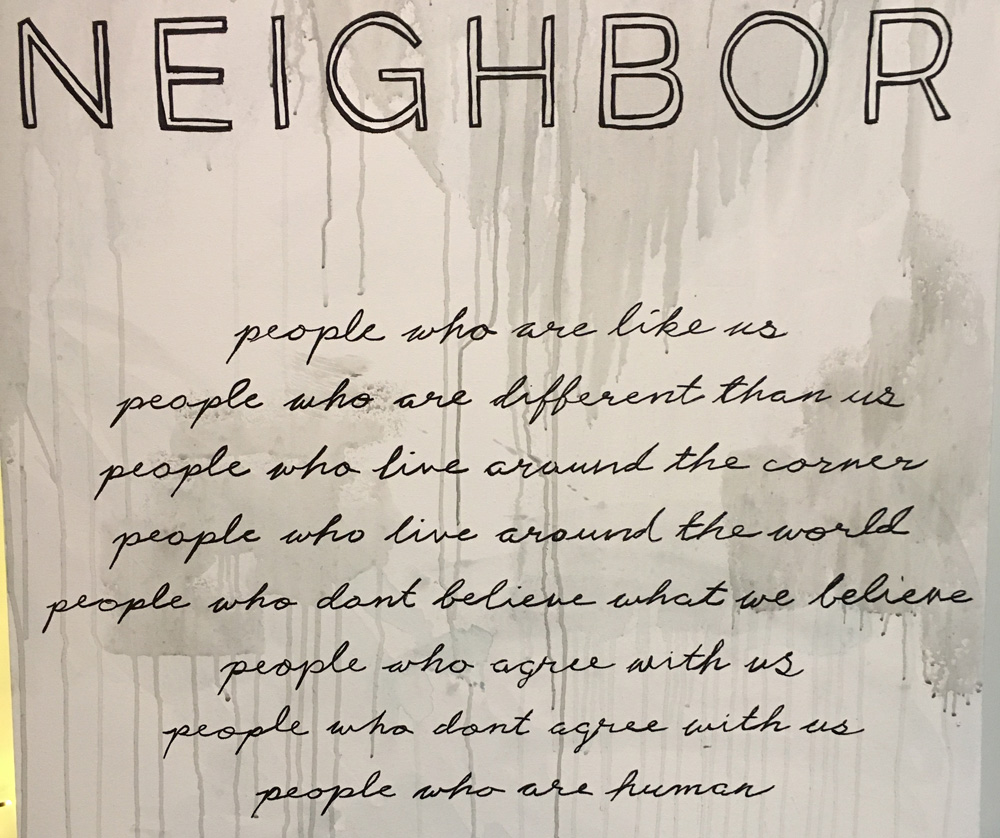 NEIGHBOR
people who are like us
people who are different than us
people who live around the corner
people who live around the world
people who dont believe what we believe
people who agree with us
people who dont agree with us
people who are human